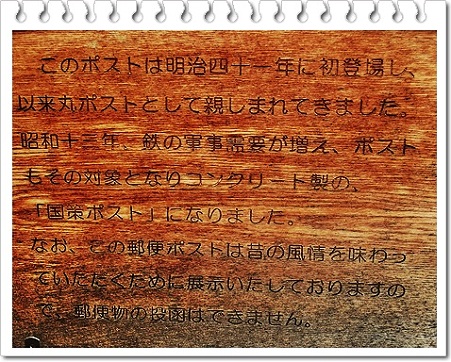 このポストは明治四十一年に初登場し、
以来丸ポストとして親しまれてきました。
昭和十三年、鉄の軍事需要が増え、ポスト
もその対象となりコンクリート製の、
「国策ポスト」になりました。
なお、この郵便ポストは昔の風情を味わっ
ていただくために展示いたしておりますの
で、郵便物の投函はできません。